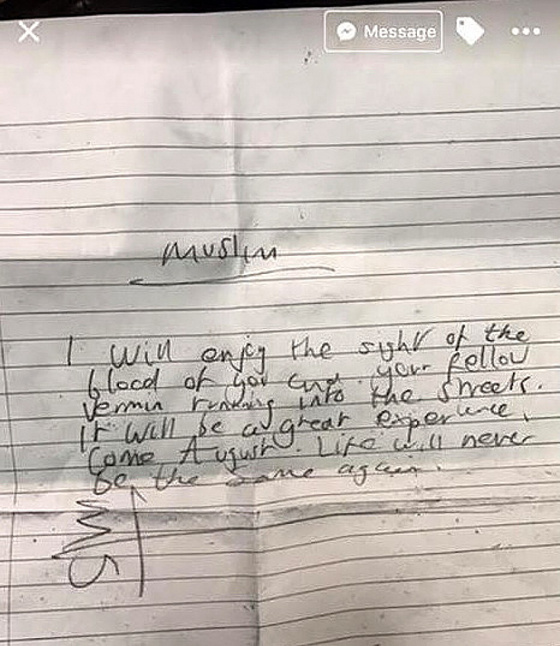 Message
Muslim
I will enjoy the sight of the
blood of you and your fellow
vermin running into the streets.
It will be a great experience,
Come August. Life will never
be the same again.